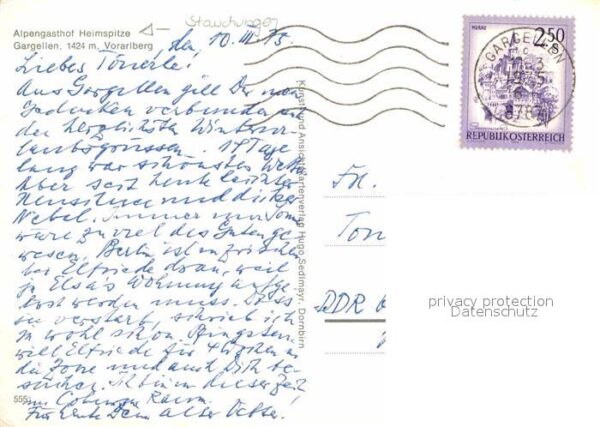 Stauchungen
Alpengasthof Heimspitze
Gargellen, 1424 m, Vorarlberg
den, 10.III.75.
Liebes Tönerle!
Aus Gargellen gilt Dir
Gedanken verbunden
der herzlichsten Winterur-
laubsgrüssen. 14 Tage
lang war schönstes Wetter
Aber seit heute leichter
Neuschnee und dicker
Nebel. Immer nur Sonne
wäre zu viel des Guten ge-
wesen. Berlin ist inzwischen
bei Elfriede dran, weil
ja Elsa's Wohnung aufge-
löst werden muss. Dass
sie verstarb, schrieb ich
ja wohl schon. Pfingsten
will Elfriede für 4 Wochen in
die Zone und auch Dich be-
suchen. Ich bin in dieser Zeit
im Coburger Raum.
Für heute Dein alter Vetter!
555
Kunst- und Ansichtskartenverlag Hugo Sedlmayr, Dornbirn
MURAU
2.50
REPUBLIK ÖSTERREICH
GARGELLEN
Frl.
Ton
DDR
privacy protection
Datenschutz